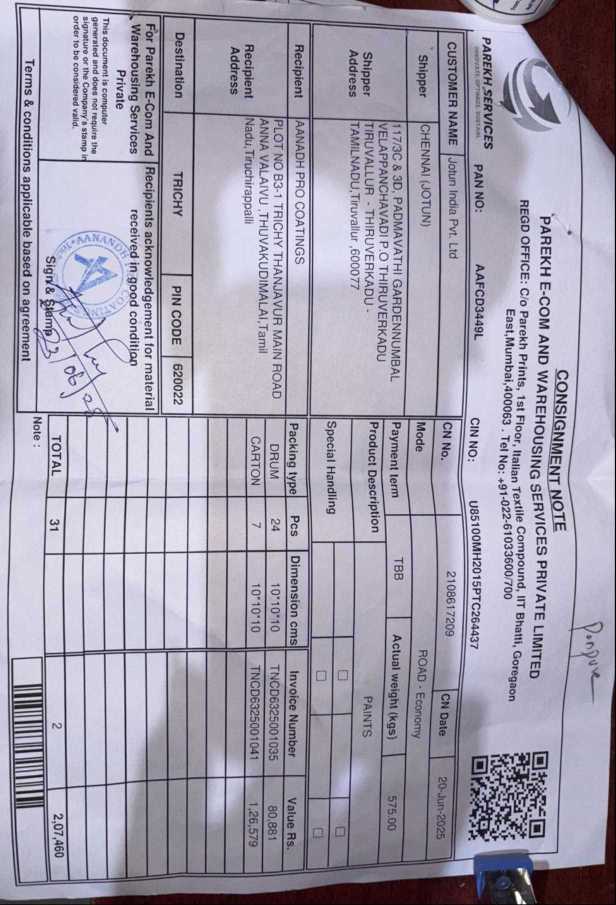 Ponpure
CONSIGNMENT NOTE
PAREKH E-COM AND WAREHOUSING SERVICES PRIVATE LIMITED
REGD OFFICE: C/o Parekh Prints, 1st Floor, Italian Textile Compound, IIT Bhatti, Goregaon
East,Mumbai,400063 . Tel No: +91-022-61033600/700
PAREKH SERVICES
PAN NO: AAFCD3449L CIN NO: U85100MH2015PTC264437
CUSTOMER NAME Jotun India Pvt. Ltd CN No. 2108617209 CN Date 20-Jun-2025
Shipper CHENNAI (JOTUN) Mode ROAD - Economy
Payment term TBB Actual weight (kgs) 575.00
Shipper Address
117/3C & 3D, PADMAVATHI GARDENNUMBAL
VELAPPANCHAVADI P.O THIRUVERKADU
TIRUVALLUR - THIRUVERKADU -
TAMILNADU,Tiruvallur ,600077
Product Description PAINTS
Special Handling
Recipient AANADH PRO COATINGS
Recipient Address
PLOT NO B3-1 TRICHY THANJAVUR MAIN ROAD
ANNA VALAIVU ,THUVAKUDIMALAI,Tamil
Nadu,Tiruchirappalli
Packing type Pcs Dimension cms Invoice Number Value Rs.
DRUM 24 10*10*10 TNCD6325001035 80,881
CARTON 7 10*10*10 TNCD6325001041 1,26,579
Destination TRICHY PIN CODE 620022
For Parekh E-Com And
Warehousing Services
Private
Recipients acknowledgement for material
received in good condition
This document is computer
generated and does not require the
signature or the Company's stamp in
order to be considered valid.
Sign & Stamp
TOTAL 31 2 2,07,460
Terms & conditions applicable based on agreement
Note :